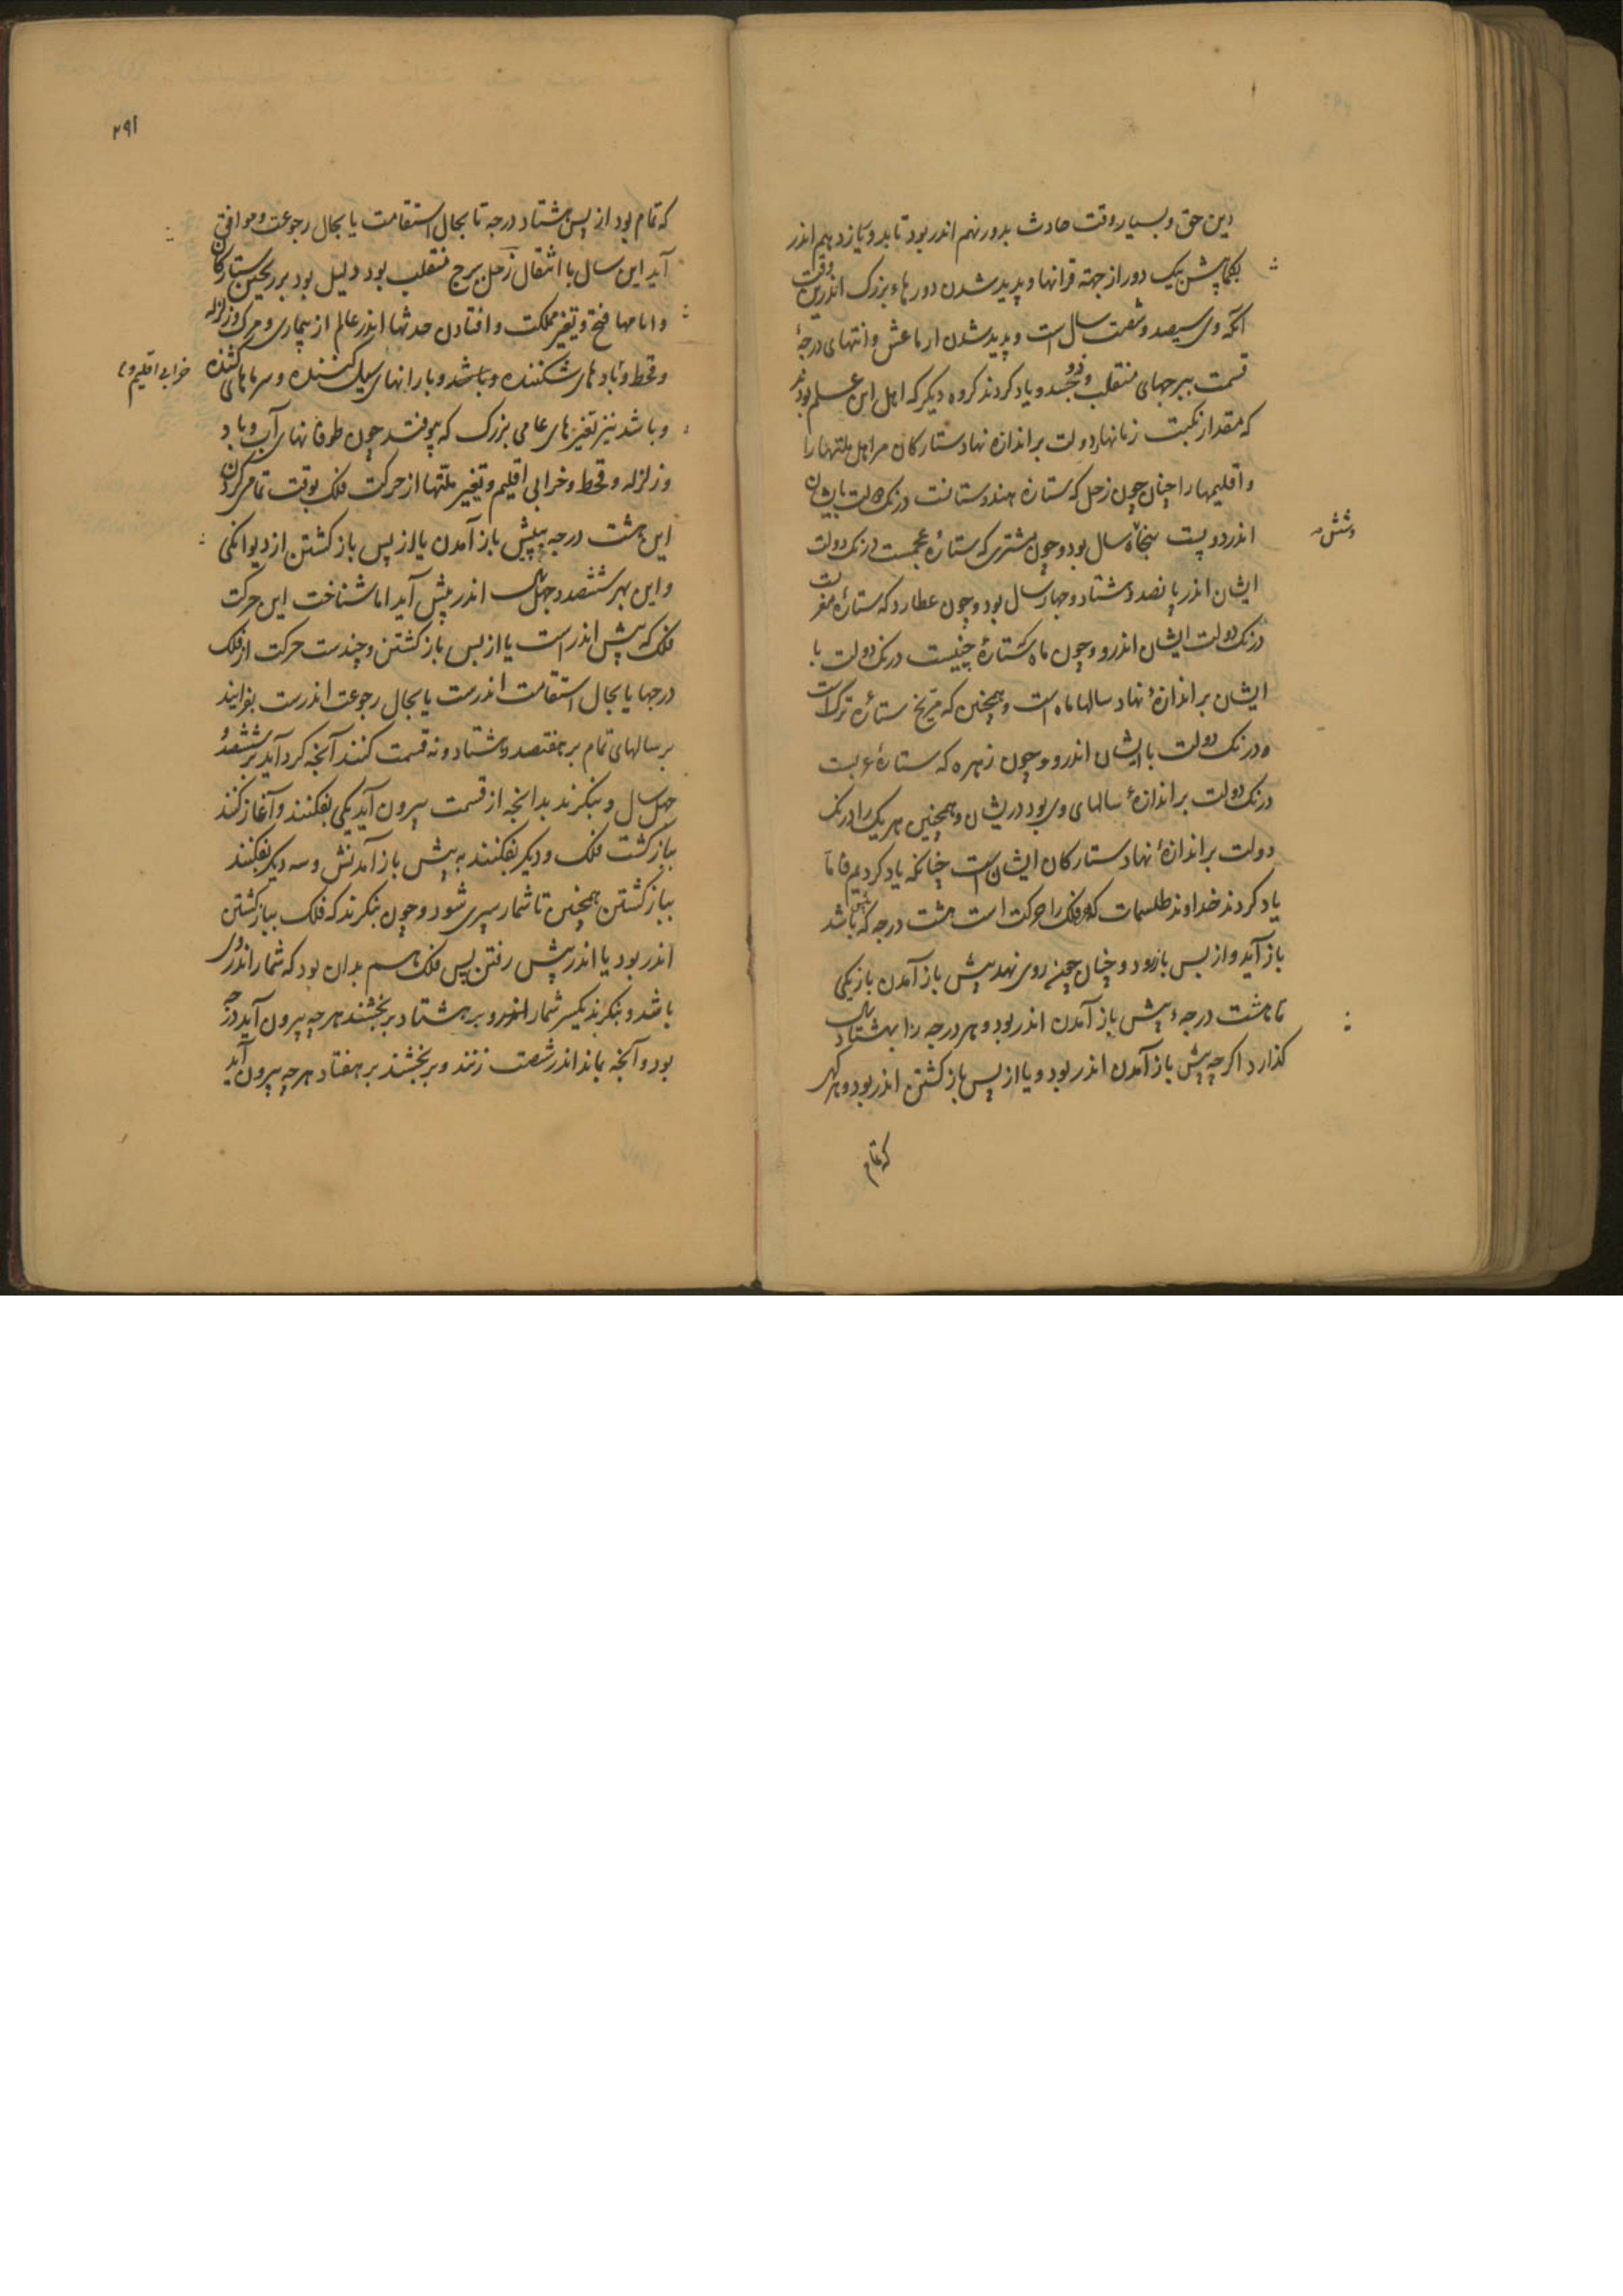 دین حق و بسیار وقت حادث بدور نهم اندر بود تا بدو یازدهم اندر
بکماپیش یک دور از جهة قرانها و پدید شدن دورهاء بزرک اندرین وقت
آنکه وی سیصد و شصت سال است و پدید شدن ار باعش و انتهای درجهٔ
قسمت ببرجهای منقلب و ذو جسد و یاد کردند کروه دیکر که اهل این علم بودند
که مقدار نکبت زمانها و دولت بر اندازه نهاد ستارکان مر اهل ملتها را
و اقلیمها را چنان چون زحل که ستاره هندوستانت درنک دولت بایشان
اندر دویست پنجاه سال بود و چون مشتری که ستارهٔ عجمست درنک دولت
وشش صہ
ایشان اندر پانصد و هشتاد و چهار سال بود و چون عطارد که ستارهٔ مغربست
درنک دولت ایشان اندرو و چون ماه که ستارهٔ چینیست درنک دولت با
ایشان بر اندازهٔ نهاد سالها ماه است و همچنین که مریخ ستارهٔ ترک است
و درنک دولت با ایشان اندرو و چون زهره که ستارهٔ عربست
درنک دولت بر اندازهٔ سالهای وی بود دریشان و همچنین هر یک را درنک
دولت بر اندازهٔ نهاد ستارکان ایشان است چنانکه یاد کردیم فاما
یاد کردند خداوند طلسمات که مر فلک را حرکت است هشت درجه که پیش باشد
باز آید و از پس باز رود و چنان چون روی نهد پیش باز آمدن باز یکی
تا هشت درجهٔ پیش باز آمدن اندر بود و هر درجه را بهشتاد سال
کذارد اکر چه پیش باز آمدن اندر بود و یا از پس باز کشتن اندر بود و هر کهی
که تمام
۲۹۱
که تمام بود از پس هشتاد درجه تا بحال استقامت یا بحال رجوعت و موافق
آید این سال با انتقال زحل ببرج منقلب بود دلیل بود بر ستارکان
و امامها فتح و تغیر مملکت و افتادن حدثها اندر عالم از بیماری و مرک و زلزله
و قحط و بادهای شکننده و باشد و بارانهای سیل کننده و سرماهای کشنده
خرابی اقلیم و
و باشد نیز تغیرهای عامی بزرک که بیوفتد چون طوفانهای آب و باد
و زلزله و قحط و خرابی اقلیم و تغیر ملتها از حرکت فلک بوقت تمام کردن
این هشت درجه بپیش باز آمدن یا از پس باز کشتن از دیوانکی
و این بهر ششصد و چهل سال اندر پیش آید اما شناخت این حرکت
فلک که پیش اندر است یا از پس باز کشتن و چندست حرکت از فلک
درجها یا بحال استقامت اندرست یا بحال رجوعت اندرست بفزایند
بر سالهای تمام بر هفتصد و هشتاد و نه قسمت کنند آنچه کرد آید بر ششصد و
چهل سال و بنکرند بدانچه از قسمت بیرون آید یکی بفکنند و آغاز کنند
بباز کشت فلک و دیکر بفکنند به پیش باز آمدنش و سه دیکر بفکنند
بباز کشتن همچنین تا شمار سپری شود و چون بنکرند که فلک بباز کشتن
اندر بود یا اندر پیش رفتن پس فلک هم بدان بود که شمار اندروی
باشد و بنکرند بکسر شمار اندرو بر هشتاد بر بخشند هر چه بیرون آید درجه
بود و آنچه بماند اندر شصت زنند و بر بخشند بر هفتاد هر چه بیرون آید